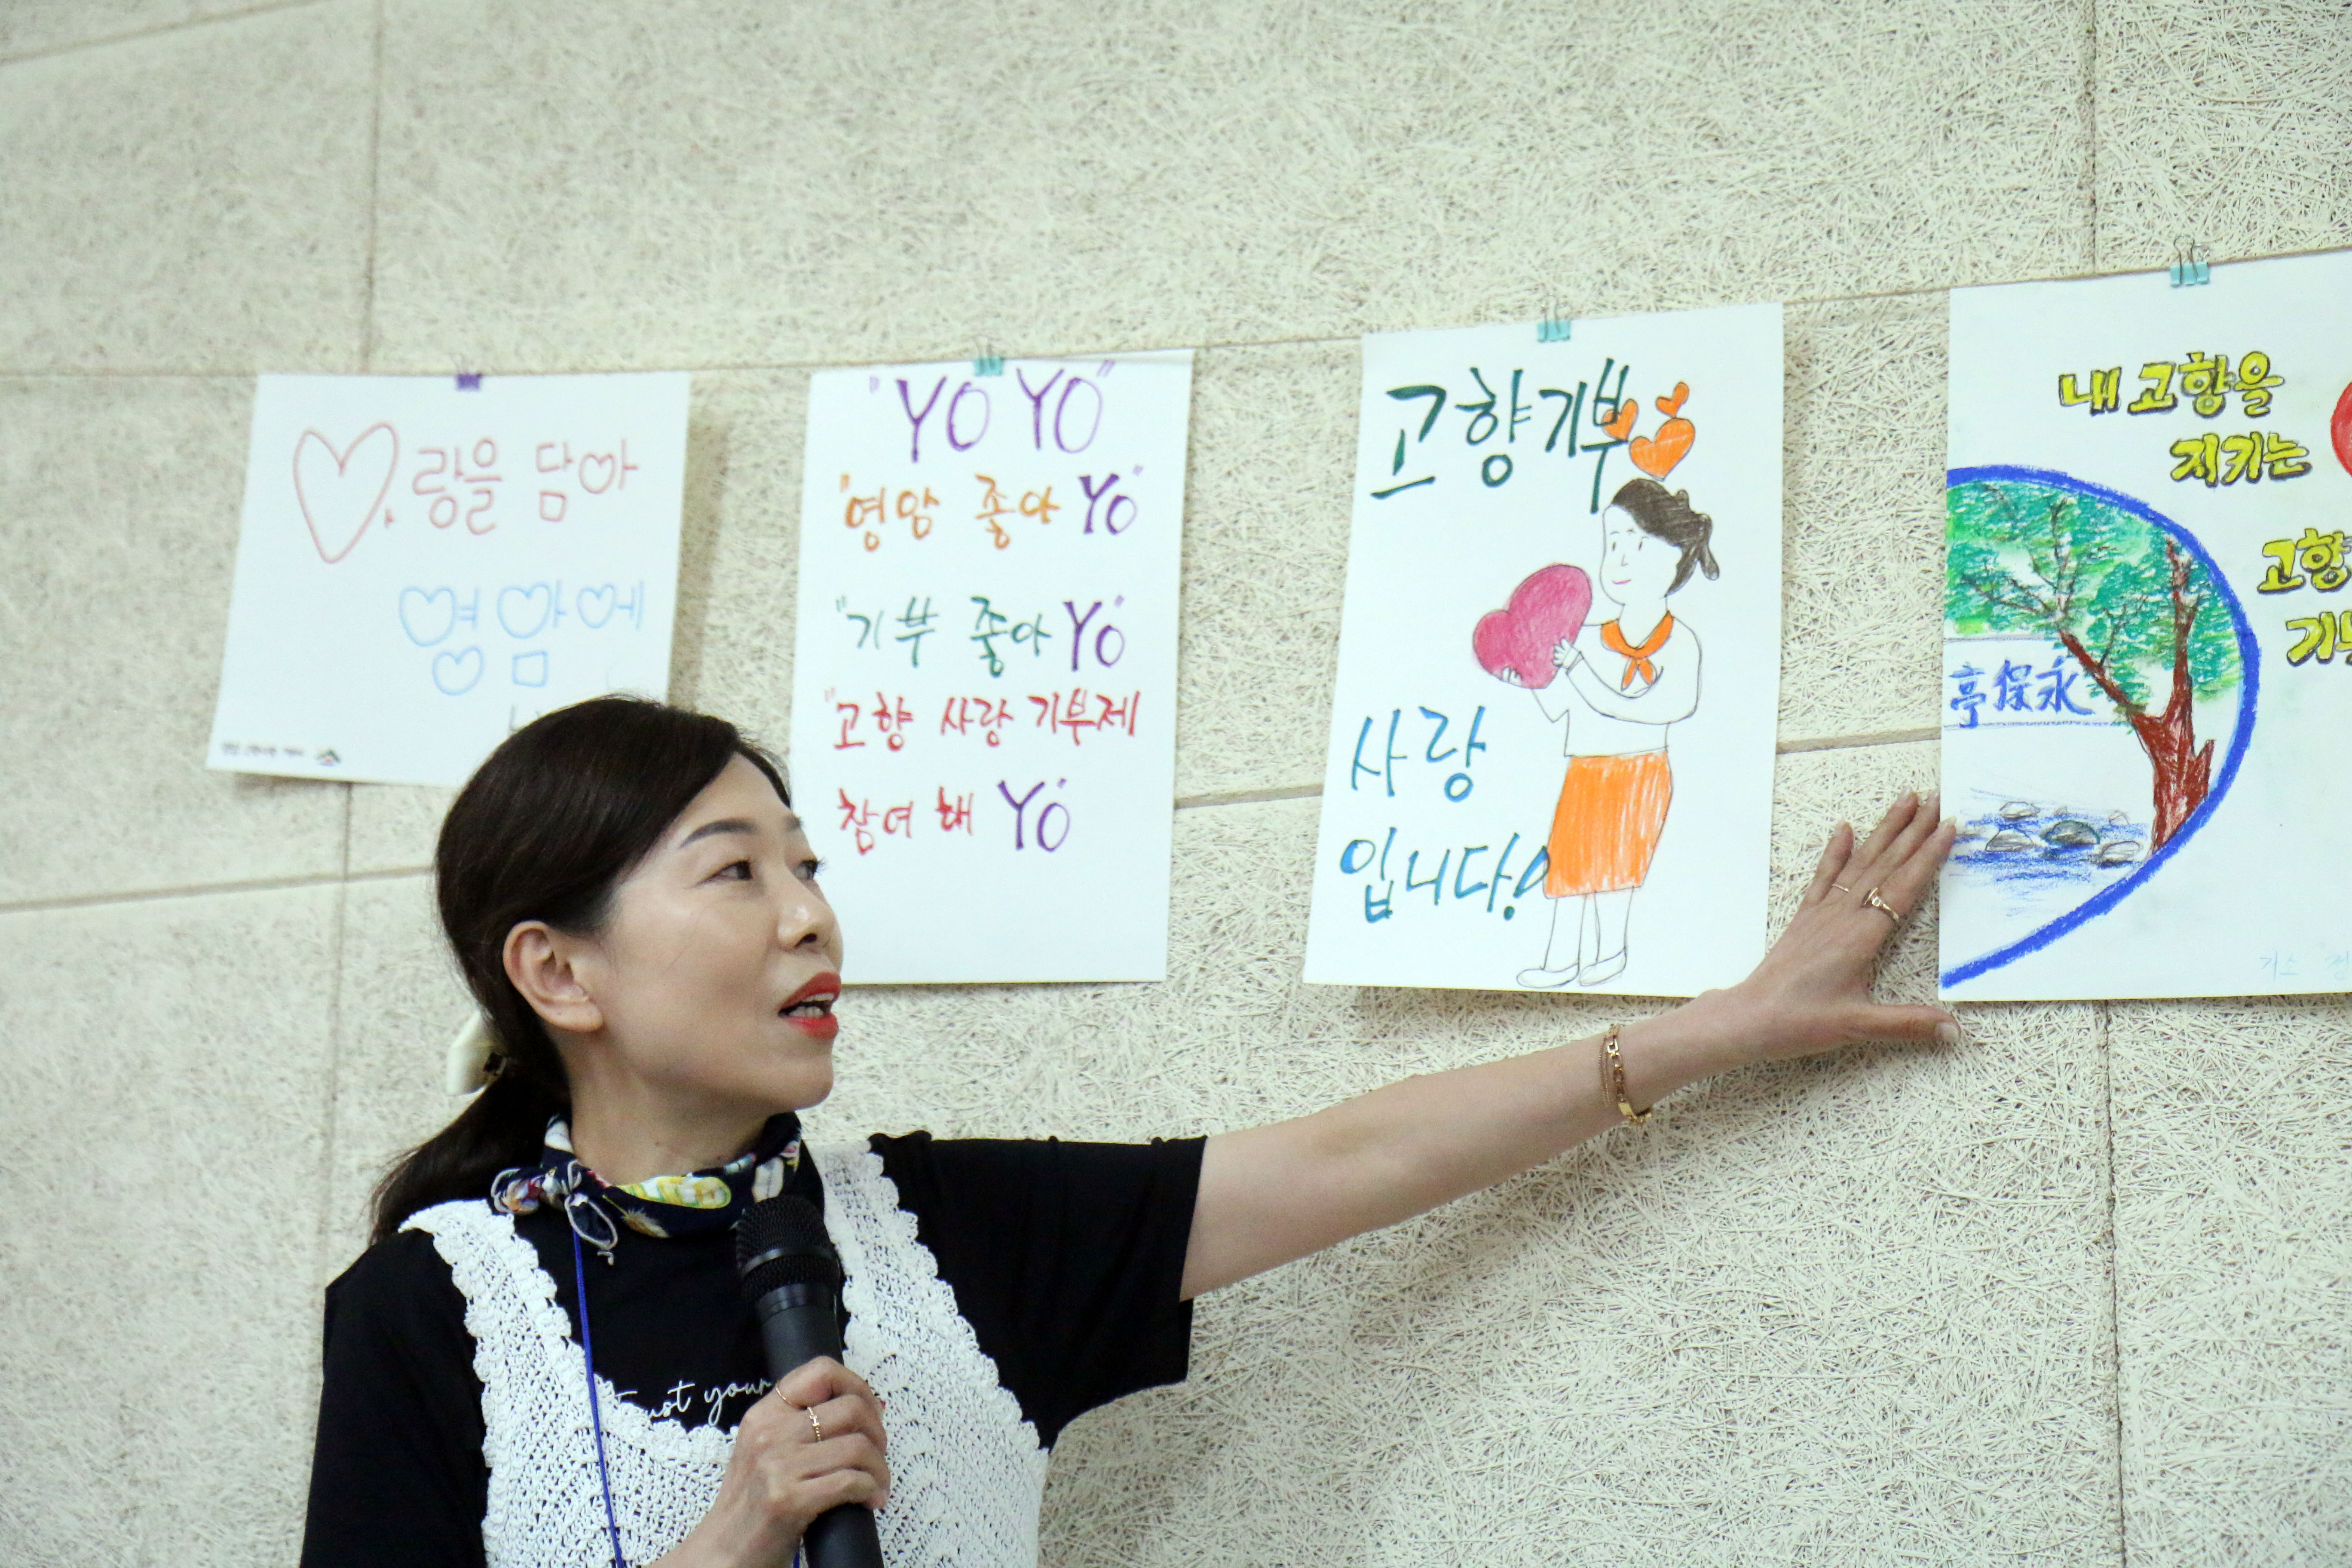 랑을 담아
영암에
"YO YO"
"영암 좋아 YO"
"기부 좋아 YO"
"고향 사랑 기부제
참여 해 YO
고향기부
사랑
입니다!
내 고향을
지키는
고향
亭保永
Trust your